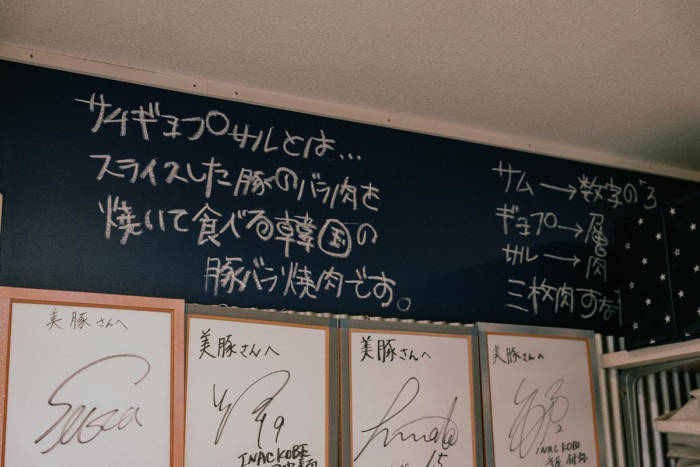 サムギョプサルとは...
スライスした豚のバラ肉を
焼いて食べる韓国の
豚バラ焼肉です。
サム→数字の「3
ギョプ→層
サル→肉
三枚肉 すな
美豚さんへ
美豚さんへ
19
INAC KOBE
美豚さんへ
15
美豚さんへ
2
INAC KOBE